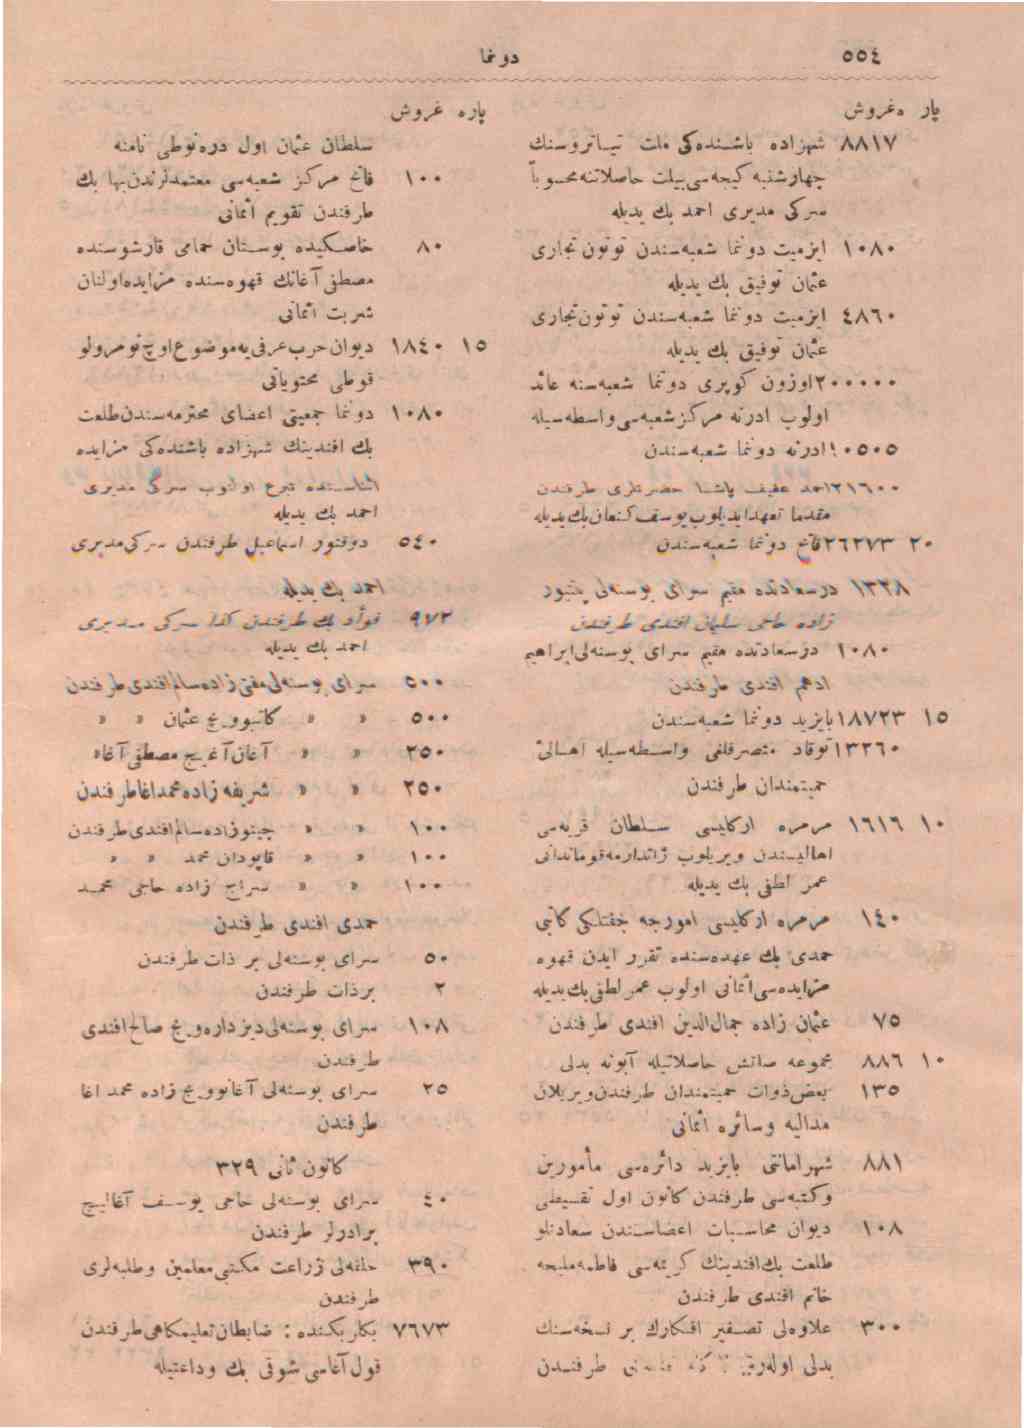 ٥٥٤
دونما
پاره غروش
٨٨١٧ شهزاده باشنده‌كی ملت تیاتروسنك
چهارشنبه كیجه‌سی بیلت حاصلاتنه محسوباً
سركی مدیری احمد بك یدیله
١٠٨٠ ایزمیت دونما شعبه‌سندن توتون تجاری
عثمان توفیق بك یدیله
٤٨٦٠ ایزمیت دونما شعبه‌سندن توتون تجاری
عثمان توفیق بك یدیله
٢٠٠٠٠٠ اوزون كوپری دونما شعبه‌سنه عائد
اولوب ادرنه مركز شعبه‌سی واسطه‌سیله
١٠٥٠٥ ادرنه دونما شعبه‌سندن
٢١٦٠٠ احمد عفیف پاشا حضرتلری طرفندن
مقدما تعهد ایدیلوب یوسف كنعان بك یدیله
٢٠ ٢٦٢٧٣ فاتح دونما شعبه‌سندن
١٣٢٨ درسعادتده مقیم سرای بوسنه‌لی
زاده حاجی سلیمان افندی طرفندن
١٠٨٠ درسعادتده مقیم سرای بوسنه‌لی ابراهیم
ادهم افندی طرفندن
١٥ ١٨٧٢٣ بایزید دونما شعبه‌سندن
١٣٢٦٠ توقاد متصرفلغی واسطه‌سیله اهالئ
حمیتمندان طرفندن
١٠ ١٦١٦ مرمره اركلیسی سلطان قریه‌سی
اهالیسندن ویریلوب ژاندارمه قوماندانی
عمر لطفی بك یدیله
١٤٠ مرمره اركلیسی امورجه چفتلكی كاتبی
حمدی بك عهده‌سنده تقرر ایدن قهوه
مزایده‌سی اثمانی اولوب عمر لطفی بك یدیله
٧٥ عثمان زاده جمال‌الدین افندی طرفندن
١٠ ٨٨٦ مجموعه صاتش حاصلاتیله آبونه بدلی
١٣٥ بعض ذوات حمیتمندان طرفندن ویریلان
مدالیه وسائره اثمانی
٨٨١ شهرامانتی بایزید دائره‌سی مأمورین
وكتبه‌سی طرفندن كانون اول تقسیطی
١٠٨ دیوان محاسبات اعضاسندن سعادتلو
طلعت بك افندینك كریمه‌سی فاطمه ملیحه
خانم افندی طرفندن
٣٠٠ علاوه‌لی تصفیر افكارك بر نسخه‌سنك
بدلی اوله‌رق طرفندن
پاره غروش
سلطان عثمان اول دره‌نوطی نامنه
١٠٠ فاتح مركز شعبه‌سی معتمدلرندن بها بك
طرفندن تقویم اثمانی
٨٠ خاصكیده بوستان حمامی قارشوسنده
مصطفی آغانك قهوه‌سنده مزایده اولنان
شربت اثمانی
١٥ ١٨٤٠ دیوان حرب عرفی‌یه موضوع اوچ نومرولو
قوطی محتویاتی
١٠٨٠ دونما جمعیتی اعضای محترمه‌سندن طلعت
بك افندینك شهزاده باشنده‌كی مزایده
اثناسنده تبرع اولنوب سركی مدیری
احمد بك یدیله
٥٤٠ دوقتور اسماعیل طرفندن سركی مدیری
احمد بك یدیله
٩٧٢ فوأد بك طرفندن كذا سركی مدیری
احمد بك یدیله
٥٠٠ سرای بوسنه‌لی مفتی زاده سالم افندی طرفندن
٥٠٠ » » كاتبوویچ عثمان » »
٢٥٠ » » آغان آغیچ مصطفی آغا »
٢٥٠ » » شریفه زاده محمد اغا طرفندن
١٠٠ » » چیتوزاده سالم افندی طرفندن
١٠٠ » » قاپودان محمد » »
١٠٠ » » سراج زاده حاجی محمد
حمدی افندی طرفندن
٥٠ سرای بوسنه‌لی بر ذات طرفندن
٢ برذات طرفندن
١٠٨ سرای بوسنه‌لی دیزداره‌ویچ صالح افندی
طرفندن
٢٥ سرای بوسنه‌لی آغانوویچ زاده محمد اغا
طرفندن
كانون ثانی ٣٢٩
٤٠ سرای بوسنه‌لی حاجی یوسف آغالیچ
برادرلر طرفندن
٣٩٠ حلقه‌لی زراعت مكتبی معلمین وطلبه‌لری
طرفندن
٧٦٧٣ بكاربكنده : ضابطان تعلیمكاهی طرفندن
قول آغاسی شوقی بك وداعتیله